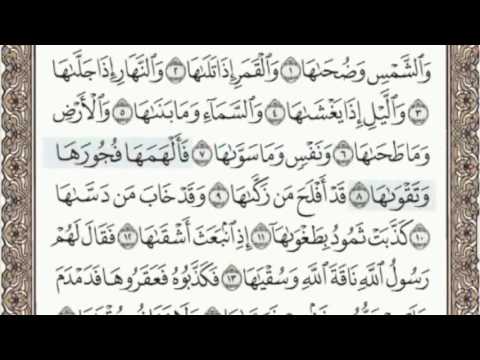 وَٱلشَّمْسِ وَضُحَىٰهَا ١ وَٱلْقَمَرِ إِذَا تَلَىٰهَا ٢ وَٱلنَّهَارِ إِذَا جَلَّىٰهَا
٣ وَٱلَّيْلِ إِذَا يَغْشَىٰهَا ٤ وَٱلسَّمَآءِ وَمَا بَنَىٰهَا ٥ وَٱلْأَرْضِ
وَمَا طَحَىٰهَا ٦ وَنَفْسٍ وَمَا سَوَّىٰهَا ٧ فَأَلْهَمَهَا فُجُورَهَا
وَتَقْوَىٰهَا ٨ قَدْ أَفْلَحَ مَن زَكَّىٰهَا ٩ وَقَدْ خَابَ مَن دَسَّىٰهَا
١٠ كَذَّبَتْ ثَمُودُ بِطَغْوَىٰهَآ ١١ إِذِ ٱنۢبَعَثَ أَشْقَىٰهَا ١٢ فَقَالَ لَهُمْ
رَسُولُ ٱللَّهِ نَاقَةَ ٱللَّهِ وَسُقْيَىٰهَا ١٣ فَكَذَّبُوهُ فَعَقَرُوهَا فَدَمْدَمَ